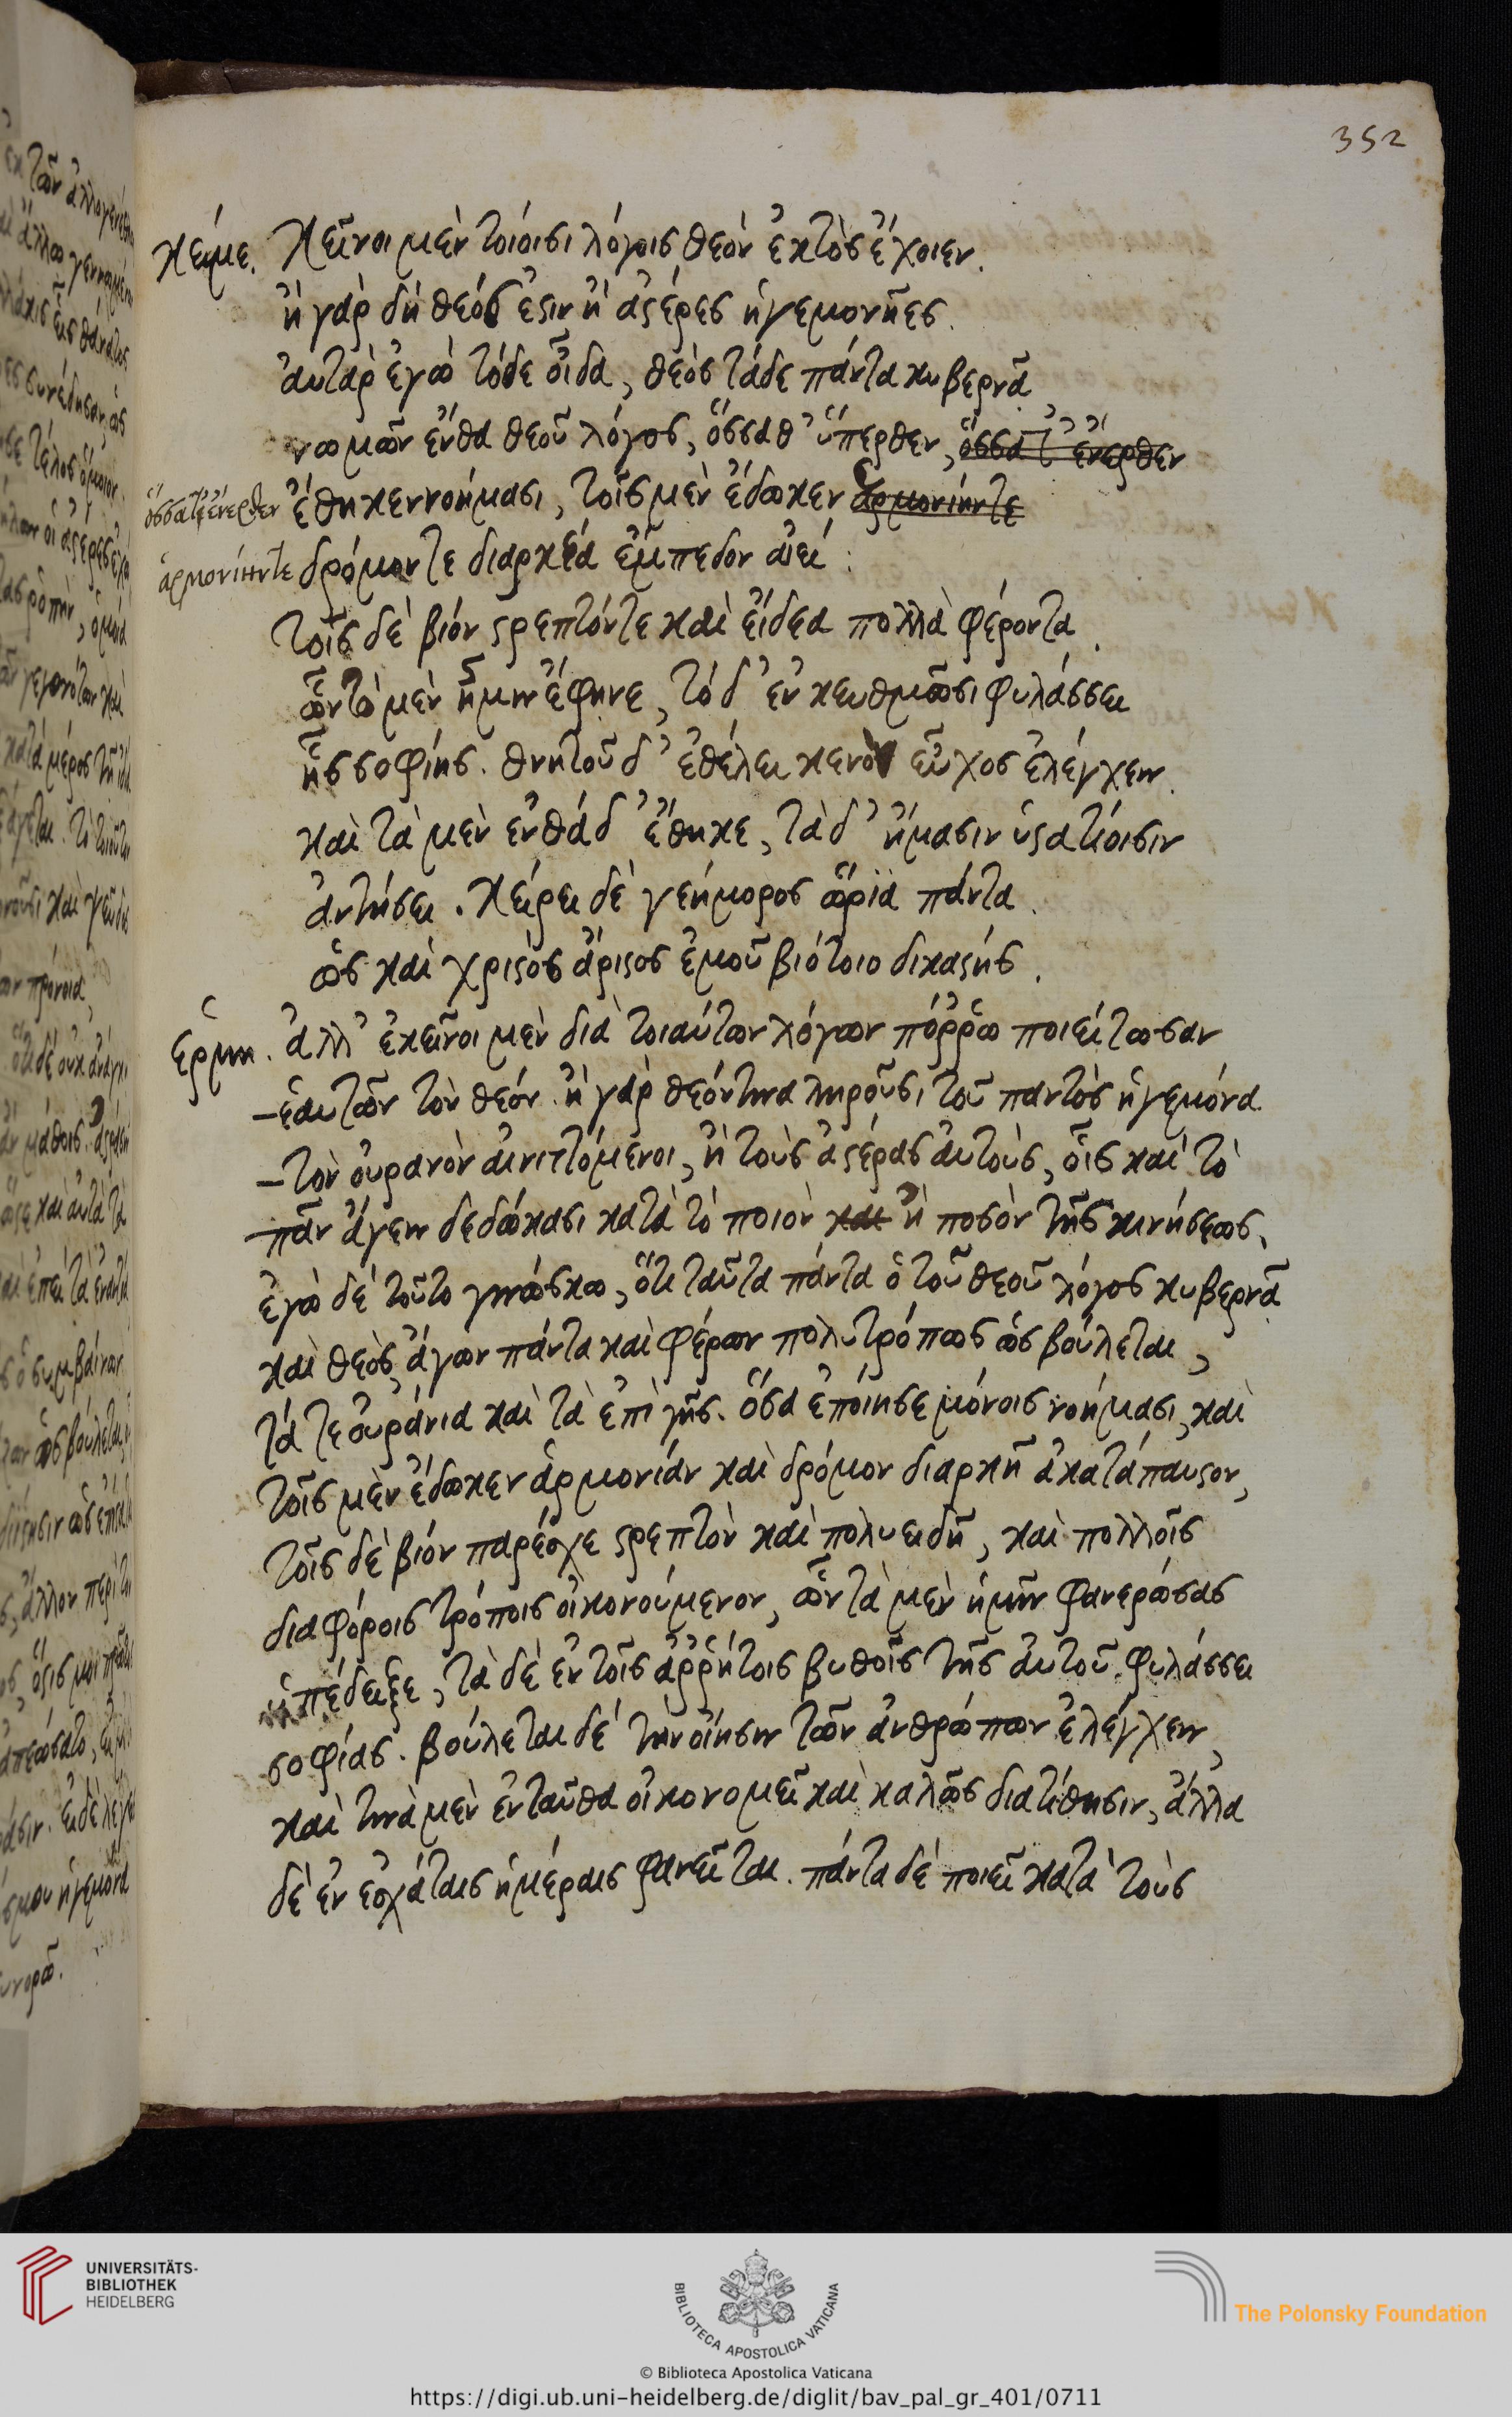 352
κείμε. Κεῖνοι μὲν τοίοισι λόγοις θεὸν ἐκτὸς ἔχοιεν.
ἢ γὰρ δὴ θεός ἐστιν ἢ ἀστέρες ἡγεμονῆες.
αὐτὰρ ἐγὼ τόδε οἶδα, θεὸς τάδε πάντα κυβερνᾶ
νωμῶν ἔνθα θεοῦ λόγος, ὅσσα θ' ὕπερθεν, ὅσσα τ' ἔνερθεν
ὅσσα τ' ἔνερθεν ἔθηκεν νοήμασι, τοῖς μὲν ἔδωκεν ἁρμονίην τε
ἁρμονίην τε δρόμον τε διαρκέα ἔμπεδον αἰεί:
τοῖς δὲ βίον στρεπτόν τε καὶ εἴδεα πολλὰ φέροντα.
ὧν τὰ μὲν ἧμιν ἔφηνε, τὸ δ' ἐν κευθμῶσι φυλάσσει
ἧς σοφίης. θνητοῦ δ' ἐθέλει κενὸν εὖχος ἐλέγχειν.
καὶ τὰ μὲν ἐνθάδ' ἔθηκε, τὰ δ' ἤμασιν ὑστατίοισιν
ἀντήσει. κείρει δὲ γεήμορος ὥρια πάντα.
ὣς καὶ χριστὸς ἄριστος ἐμοῦ βιότοιο δικαστής.
ἑρμη. ἀλλ' ἐκεῖνοι μὲν διὰ τοιαύτων λόγων πόῤῥω ποιείτωσαν
ἑαυτῶν τὸν θεόν. ἢ γὰρ θεόν τινα ληροῦσι τοῦ παντὸς ἡγεμόνα
τὸν οὐρανὸν αἰνιττόμενοι, ἢ τοὺς ἀστέρας αὐτοὺς, οἷς καὶ τὸ
πᾶν ἄγειν δεδώκασι κατὰ τὸ ποιὸν και ἢ ποσὸν τῆς κινήσεως.
ἐγὼ δὲ τοῦτο γινώσκω, ὅτι ταῦτα πάντα ὁ τοῦ θεοῦ λόγος κυβερνᾶ
καὶ θεὸς, ἄγων πάντα καὶ φέρων πολυτρόπως ὡς βούλεται,
τά τε οὐράνια καὶ τὰ ἐπὶ γῆς. ὅσα ἐποίησε μόνοις νοήμασι, καὶ
τοῖς μὲν ἔδωκεν ἁρμονίαν καὶ δρόμον διαρκῆ ἀκατάπαυστον,
τοῖς δὲ βίον παρέσχε στρεπτὸν καὶ πολυειδῆ, καὶ πολλοῖς
διαφόροις τρόποις οἰκονούμενον, ὧν τὰ μὲν ἡμῖν φανερώσας
ὑπέδειξε, τὰ δὲ ἐν τοῖς ἀῤῥήτοις βυθοῖς τῆς αὐτοῦ φυλάσσει
σοφίας. βούλεται δὲ τὴν οἴησιν τῶν ἀνθρώπων ἐλέγχειν,
καὶ τινὰ μὲν ἐνταῦθα οἰκονομεῖ καὶ καλῶς διατίθησιν, ἄλλα
δὲ ἐν ἐσχάταις ἡμέραις φανεῖται. πάντα δὲ ποιεῖ κατὰ τοὺς
UNIVERSITÄTS-
BIBLIOTHEK
HEIDELBERG
BIBLIOTECA APOSTOLICA VATICANA
The Polonsky Foundation
© Biblioteca Apostolica Vaticana
https://digi.ub.uni-heidelberg.de/diglit/bav_pal_gr_401/0711